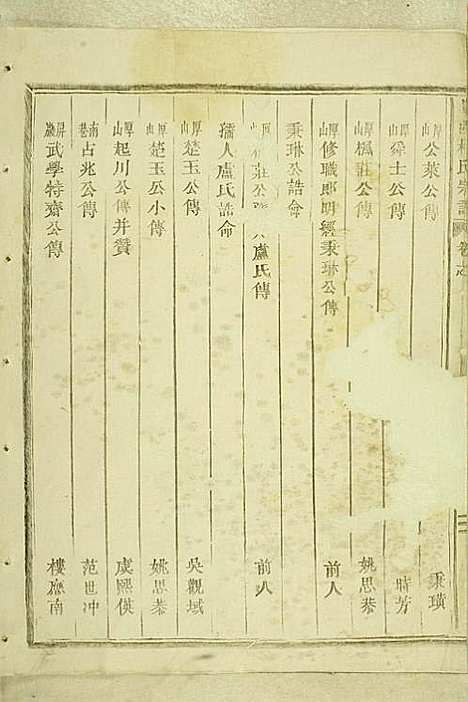 厚山 公萊公傳 秉璜
厚山 舜士公傳 時芳
厚山 楓莊公傳 姚思恭
厚山 修職郎明經秉琳公傳 前人
秉琳公誥命
莊公 盧氏傳 前人
孺人盧氏誥命
厚山 楚玉公傳 吳觀域
厚山 楚玉公小傳 姚思恭
厚山 起川公傳并贊 虞熙僕
南巷 占兆公傳 范世冲
屏巖 武學特齋公傳 樓應南